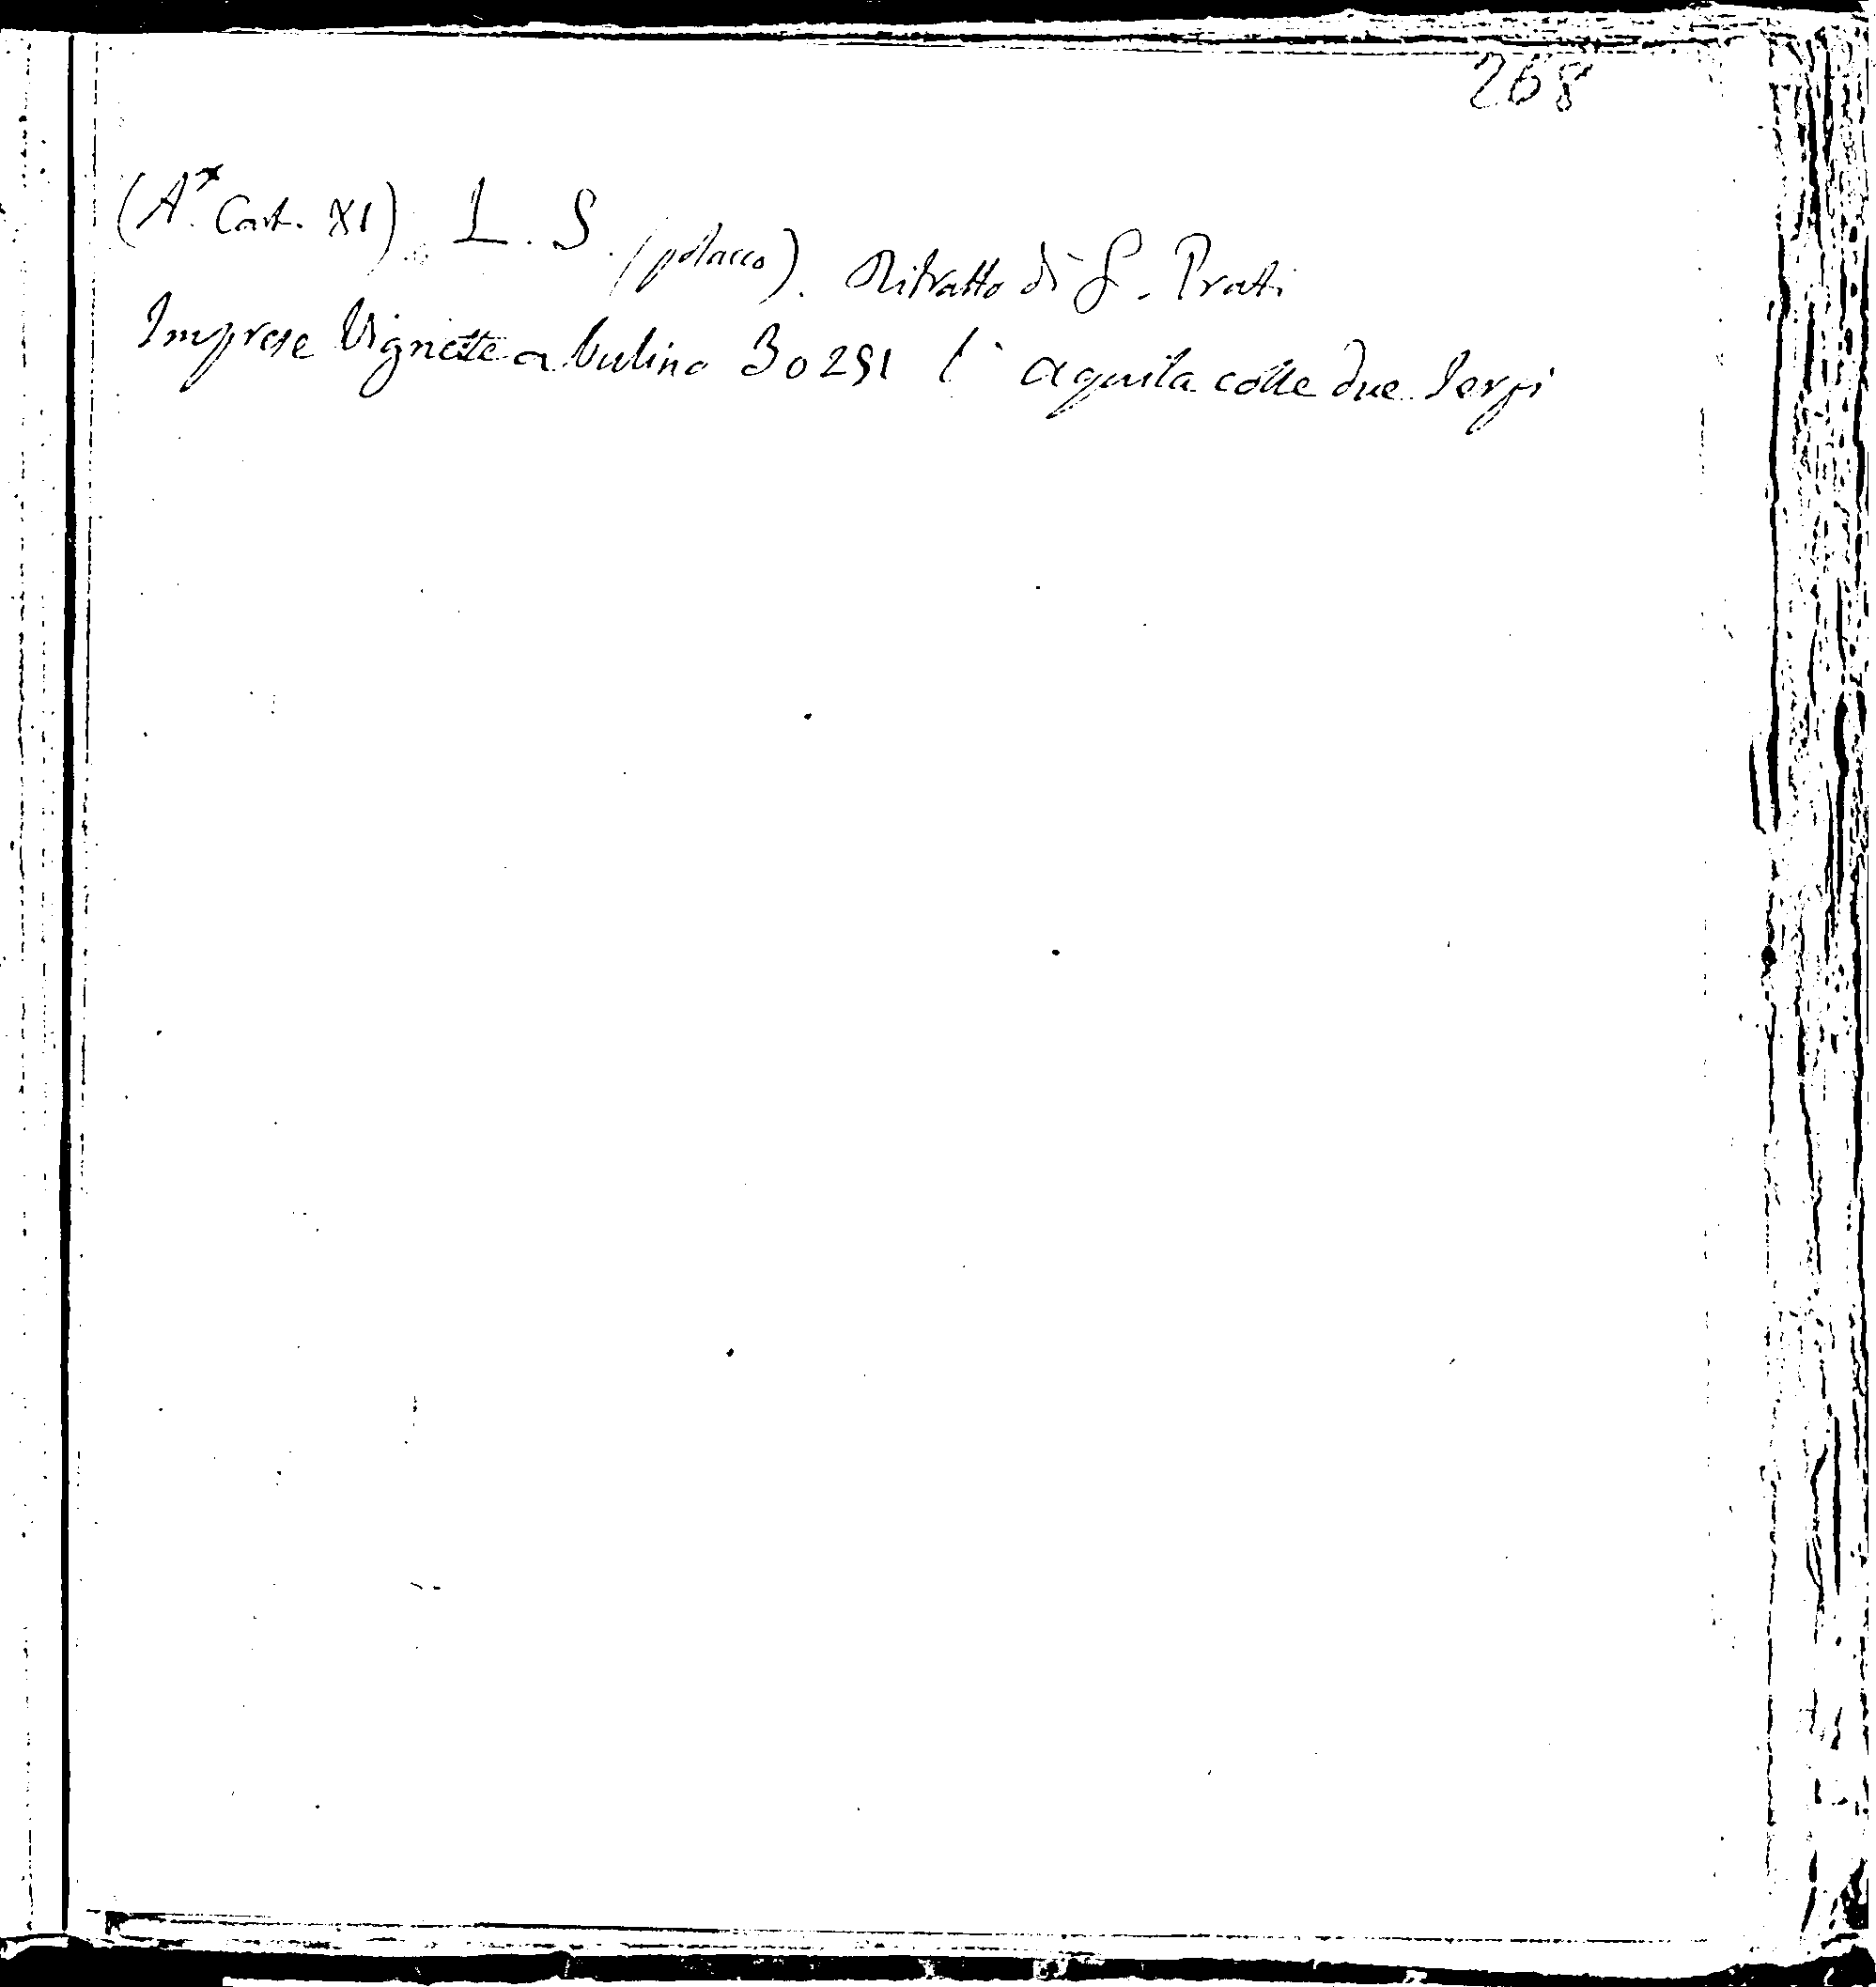 268
(A.* Cart. XI). L. S. (polacco). Ritratto di G. Prati
Imprese Vignette a bulino 30291 l' aquila colle due serpi